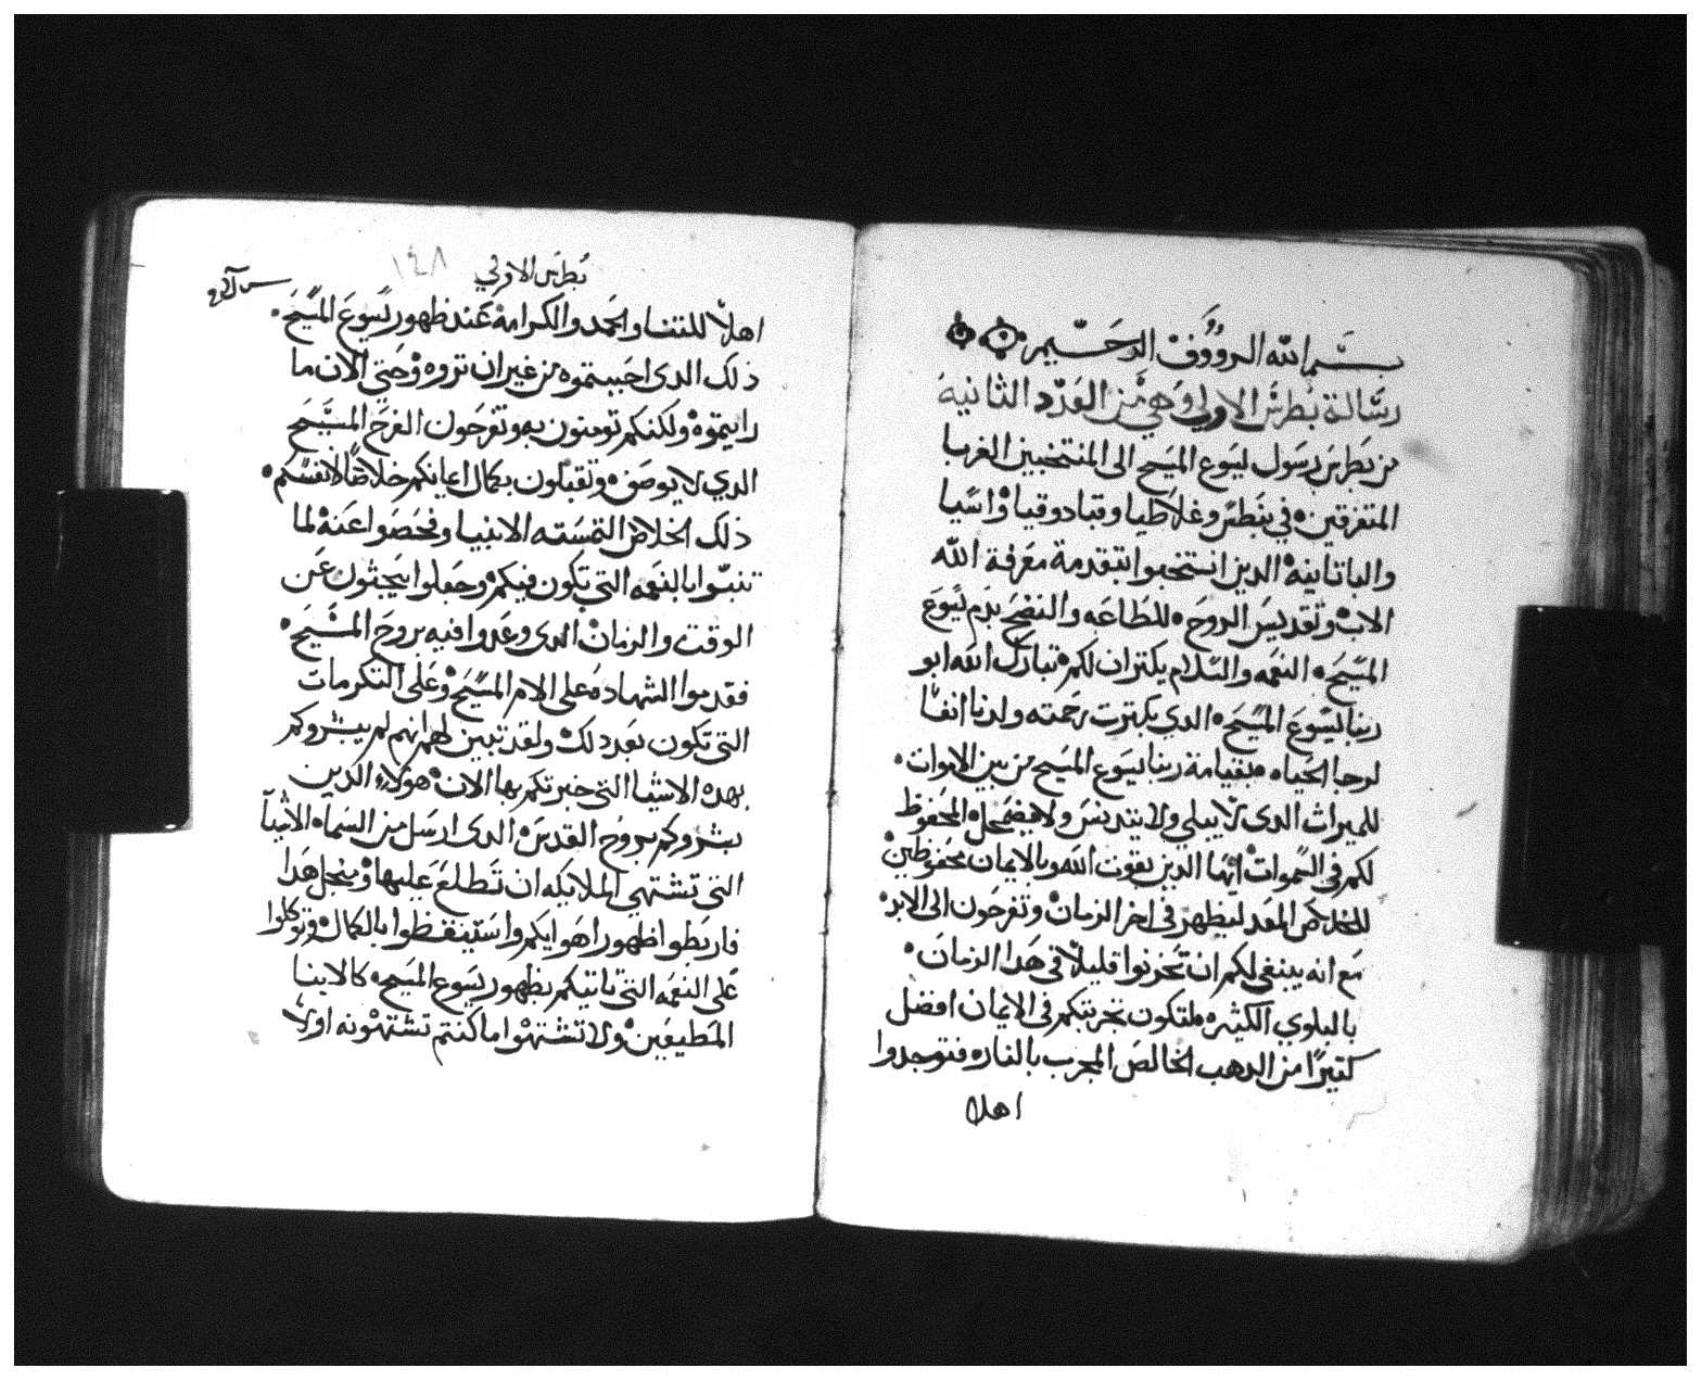 بسم الله الرووف الرحيم
رسالة بطرس الاولي وهي من العدد الثانية
من بطرس رسول ليسوع المسيح الى المنتخبين الغربا
المتفرقين في بنطس وغلاطيا وقبادوقيا واسيا
والباتانيه الدين انتخبوا بتقدمة معرفة الله
الاب وتقديس الروح للطاعه والنضح بدم يسوع
المسيح النعمه والسلام يكتران لكم تبارك الله ابو
ربنا يسوع المسيح الدي بكترت رحمته ولدنا انفا
لرجا الحياه بقيامة ربنا يسوع المسيح من بين الاموات
للميراث الدى لا يبلي ولا يتدنس ولا يضمحل المحفوظ
لكم في السموات ايها الدين بقوت الله وبالايمان محفوظين
للخلاص المعد ليظهر في اخر الزمان وتفرحون الى الابد
مع انه ينبغى لكم ان تحزنوا قليلا في هدا الزمان
بالبلوي الكثيره لتكون تجربتكم في الايمان افضل
كتيرا من الدهب الخالص المجرب بالنار فتوجدوا
اهلا
بطرس الاولي
١٤٨
اهلا للتنا والحمد والكرامه عند ظهور يسوع المسيح
ذلك الدى احببتموه من غير ان تروه وحتى الان ما
رايتموه ولكنكم تومنون به وتفرحون الفرح المسبح
الدي لا يوصف وتقبلون بكمال ايمانكم خلاصا لانفسكم
ذلك الخلاص التمسته الانبيا وفحصوا عنه لما
تنبوا بالنعمه التي تكون فيكم وجعلوا يبحثون عن
الوقت والزمان الدى وعدوا فيه بروح المسيح
فقدموا الشهاده على الام المسيح وعلى التكرمات
التى تكون بعد دلك ولقد تبين لهم انهم لم يبشروكم
بهده الاشيا التى خبرتكم بها الان هولاء الدين
بشروكم بروح القدس الدى ارسل من السماء الاشيا
التى تشتهي الملايكه ان تطلع عليها ومنجل هدا
فاربطوا ظهور اهوايكم واستيقظوا بالكمال وتوكلوا
على النعمه التى تاتيكم بظهور يسوع المسيح كالابنا
المطيعين ولا تشتهوا ما كنتم تشتهونه اولا